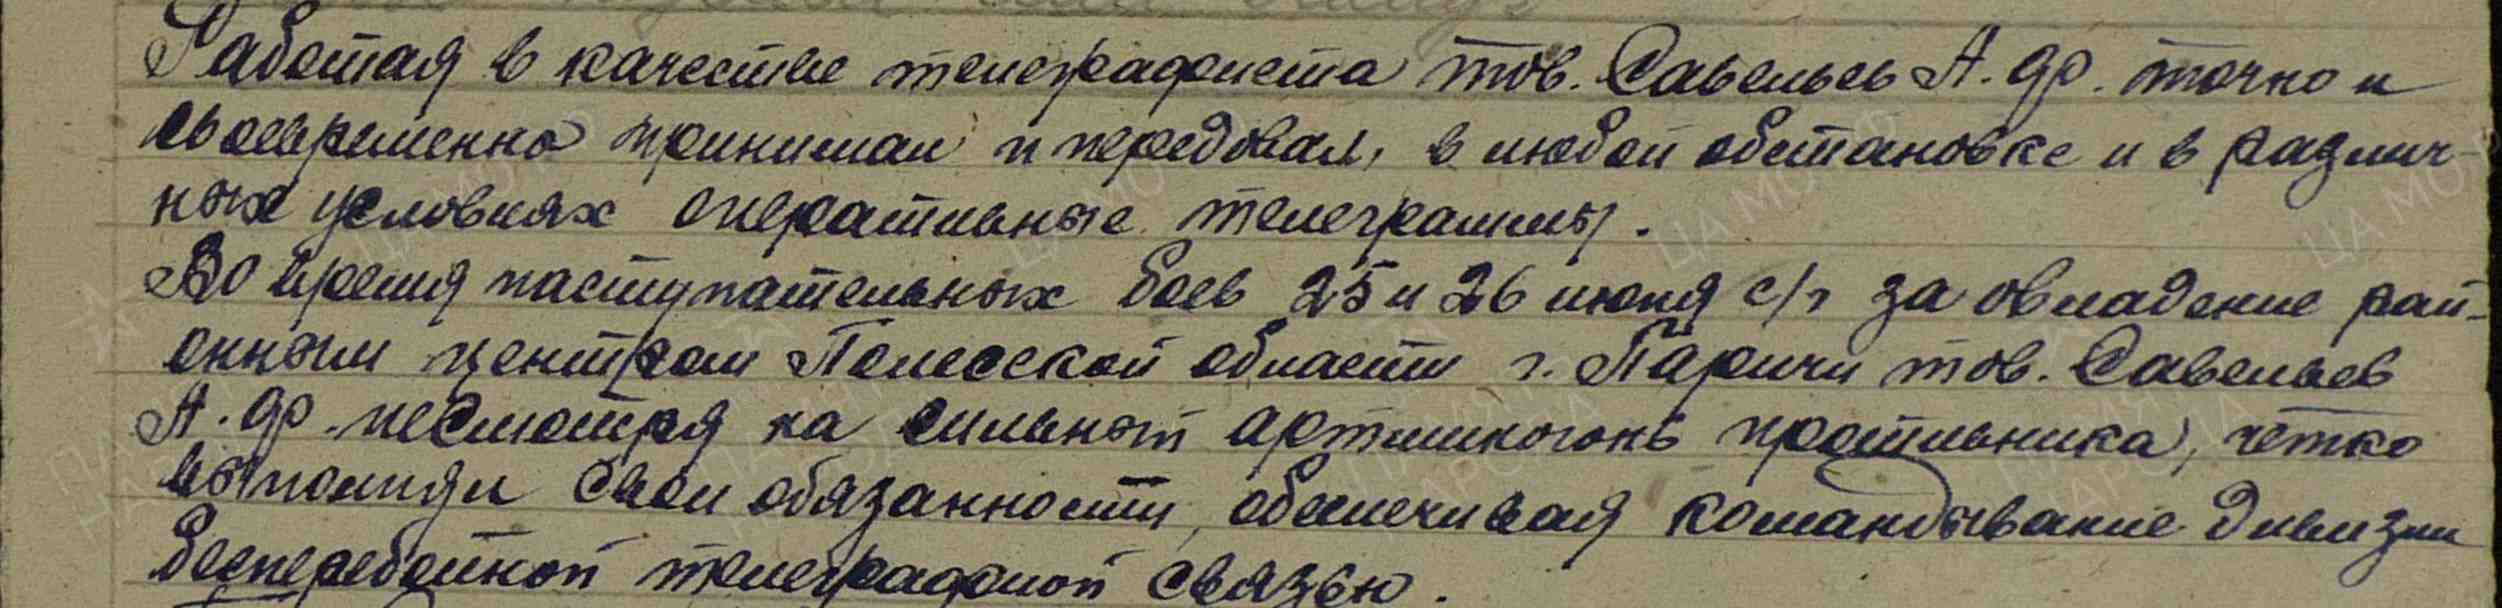 Работая в качестве телеграфиста тов. Савельев А. Ф. точно и
своевременно принимал и передовал, в любой обстановке и в различ-
ных условиях оперативные телеграммы.
Во время наступательных боев 25 и 26 июня с/г за овладение рай-
онным центром Полесской области г. Паричи тов. Савельев
А. Ф. несмотря на сильный артминогонь противника, четко
выполнял свои обязанности, обеспечивая командывание дивизии
бесперебойной телеграфной связью.